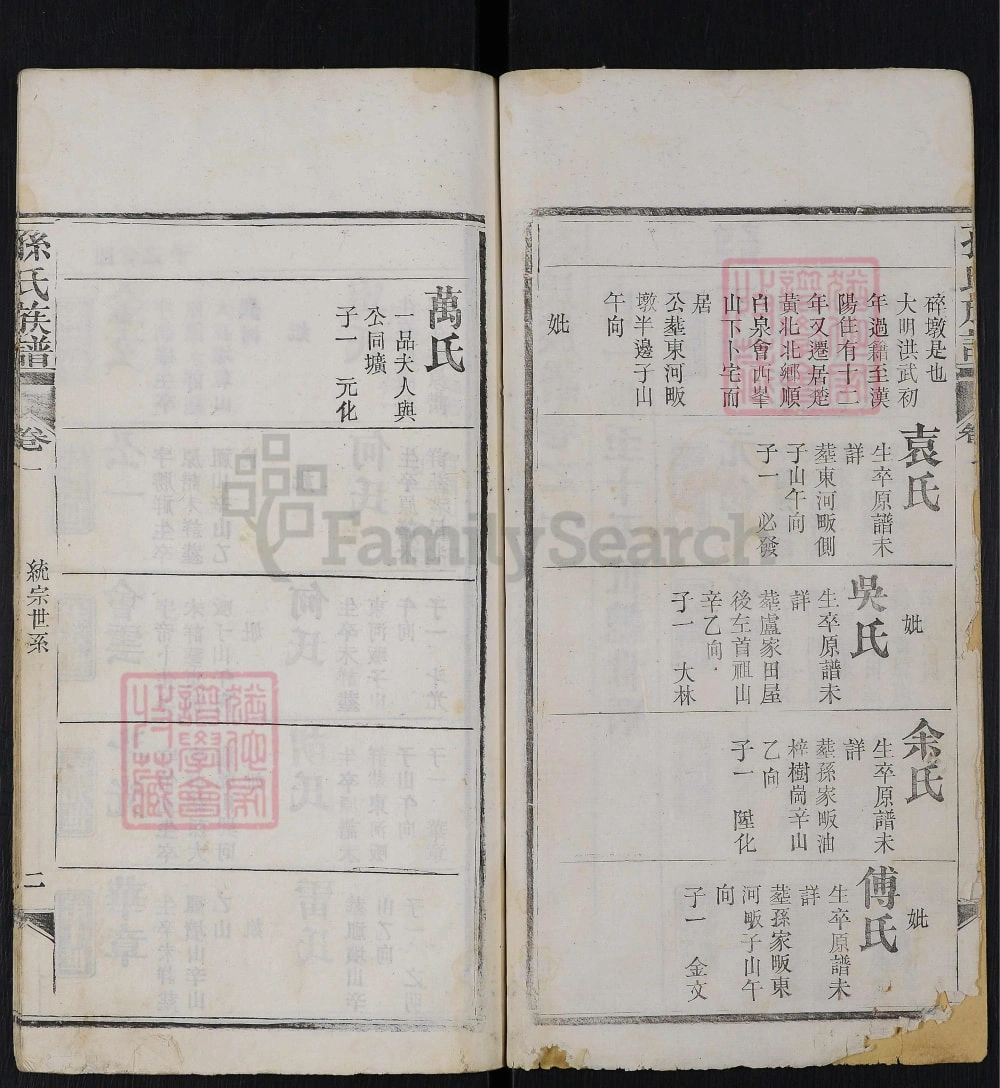 孫氏族譜
卷
碎墩是也
大明洪武初
年過籍至漢
陽住有十二
年又遷居楚
黃北北鄉順
白泉會西峯
山下卜宅而
居
公塟東河畈
墩半邊子山
午向
妣
袁氏
生卒原譜未
詳
塟東河畈側
子山午向
子一 必發
妣
吳氏
生卒原譜未
詳
塟盧家田屋
後左首祖山
辛乙向
子一 大林
余氏
生卒原譜未
詳
塟孫家畈油
榨樹崗辛山
乙向
子一 陞化
妣
傅氏
生卒原譜未
詳
塟孫家畈東
河畈子山午
向
子一 金文
萬氏
一品夫人與
公同壙
子一 元化
孫氏族譜
卷一
統宗世系
二
譜學會
收藏
FamilySearch